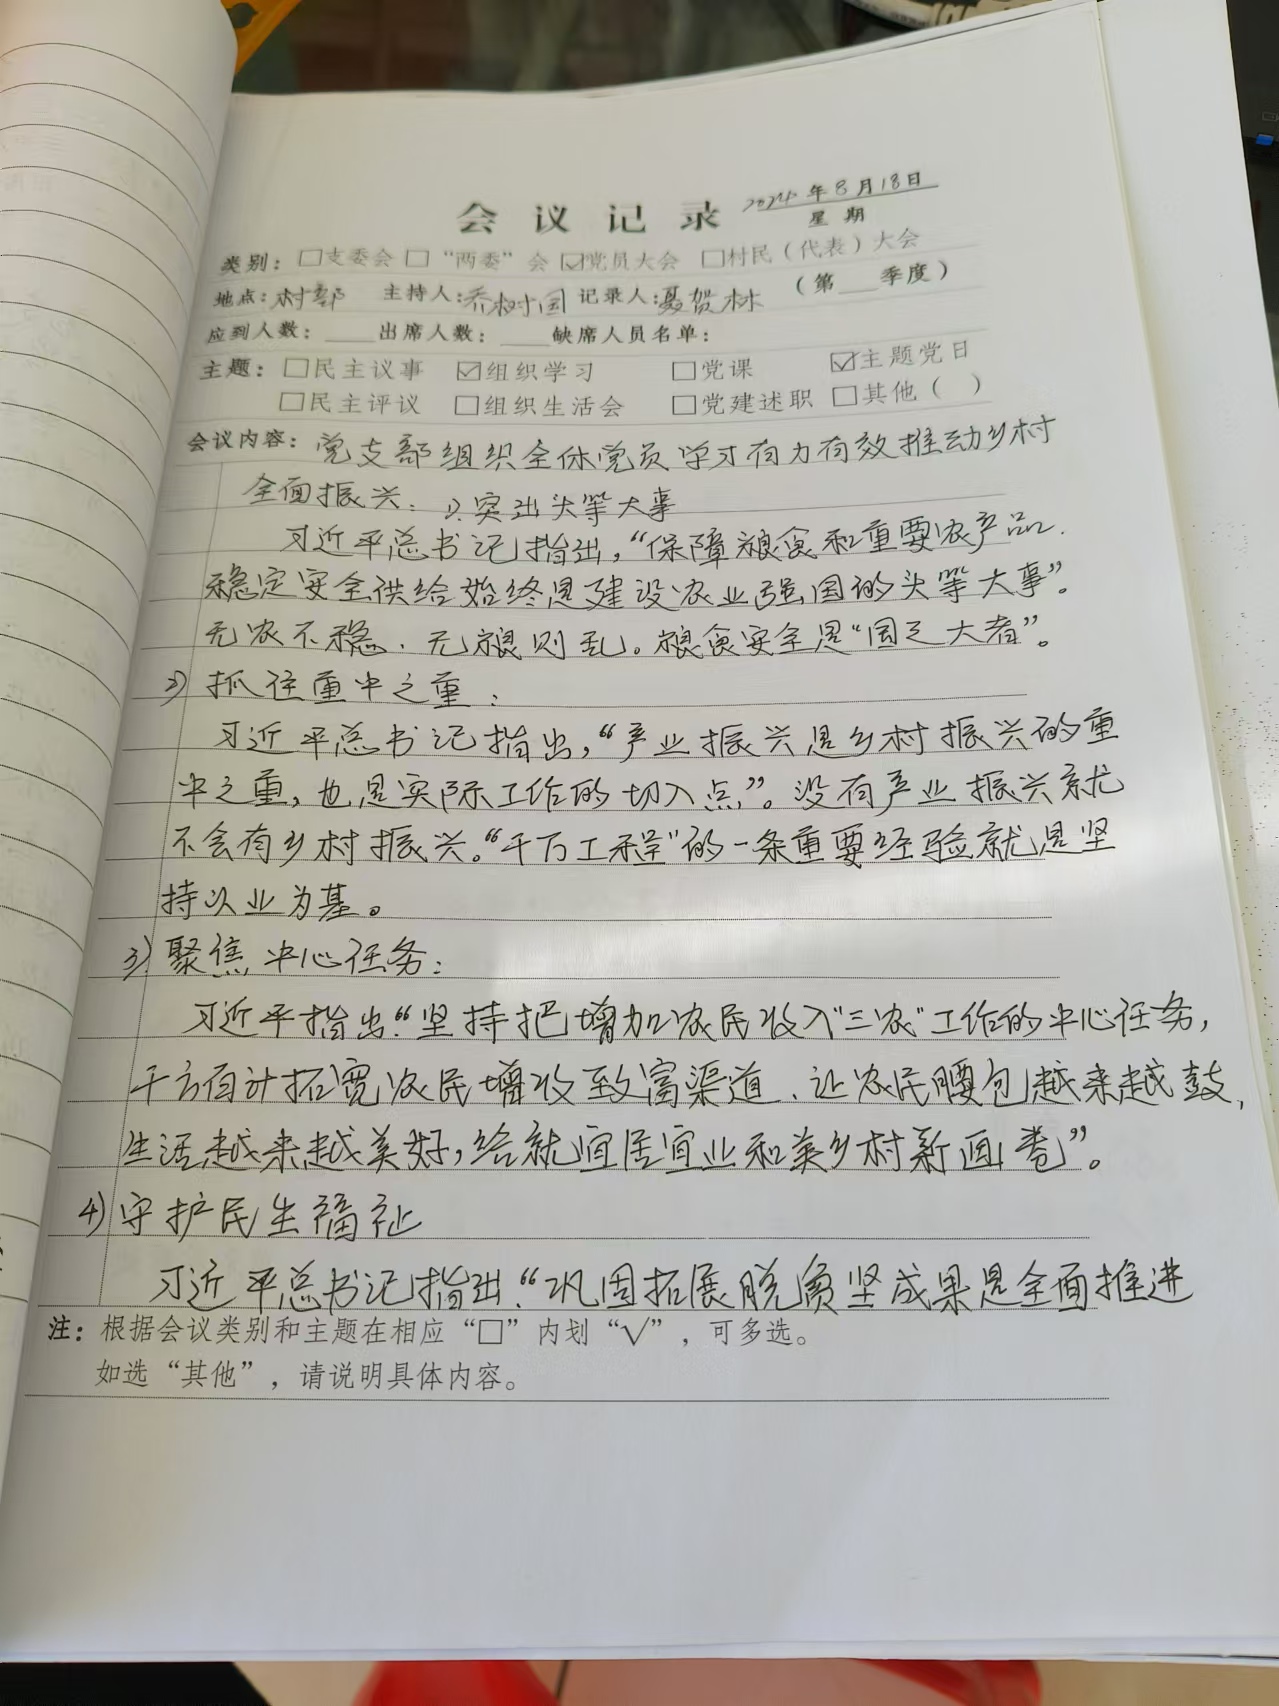 会议记录 2024年8月18日
星期
类别：□支委会 □“两委”会 ☑党员大会 □村民（代表）大会
地点：村部 主持人：乔树国 记录人：聂贺林 （第___季度）
应到人数：___出席人数：___缺席人员名单：
主题：□民主议事 ☑组织学习 □党课 ☑主题党日
□民主评议 □组织生活会 □党建述职 □其他（ ）
会议内容：党支部组织全体党员学习有力有效推动乡村
全面振兴：1）突出头等大事
习近平总书记指出，“保障粮食和重要农产品
稳定安全供给始终是建设农业强国的头等大事”。
无农不稳、无粮则乱。粮食安全是“国之大者”。
2）抓住重中之重：
习近平总书记指出，“产业振兴是乡村振兴的重
中之重，也是实际工作的切入点”。没有产业振兴就
不会有乡村振兴。“千万工程”的一条重要经验就是坚
持以业为基。
3）聚焦中心任务：
习近平指出“坚持把增加农民收入“三农”工作的中心任务，
千方百计拓宽农民增收致富渠道、让农民腰包越来越鼓，
生活越来越美好，绘就宜居宜业和美乡村新画卷”。
4）守护民生福祉
习近平总书记指出“巩固拓展脱贫坚成果是全面推进
注：根据会议类别和主题在相应“□”内划“√”，可多选。
如选“其他”，请说明具体内容。